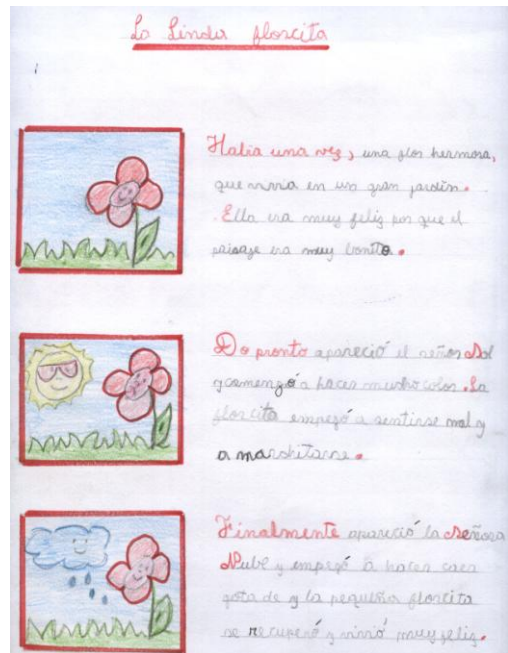 La Linda florcita
Había una vez, una flor hermosa,
que vivia en un gran jardín.
Ella era muy feliz por que el
paisaje era muy bonito.
De pronto apareció el señor Sol
y comenzó a hacer mucho calor. La
florcita empezó a sentirse mal y
a marchitarse.
Finalmente apareció la Señora
Nube y empezó a hacer caer
gota de y la pequeña florcita
se recuperó y vivió muy feliz.